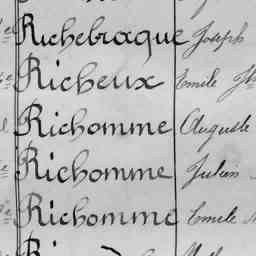 Richebraque Joseph
Richeux Emile
Richomme Auguste
Richomme Julien
Richomme Emile